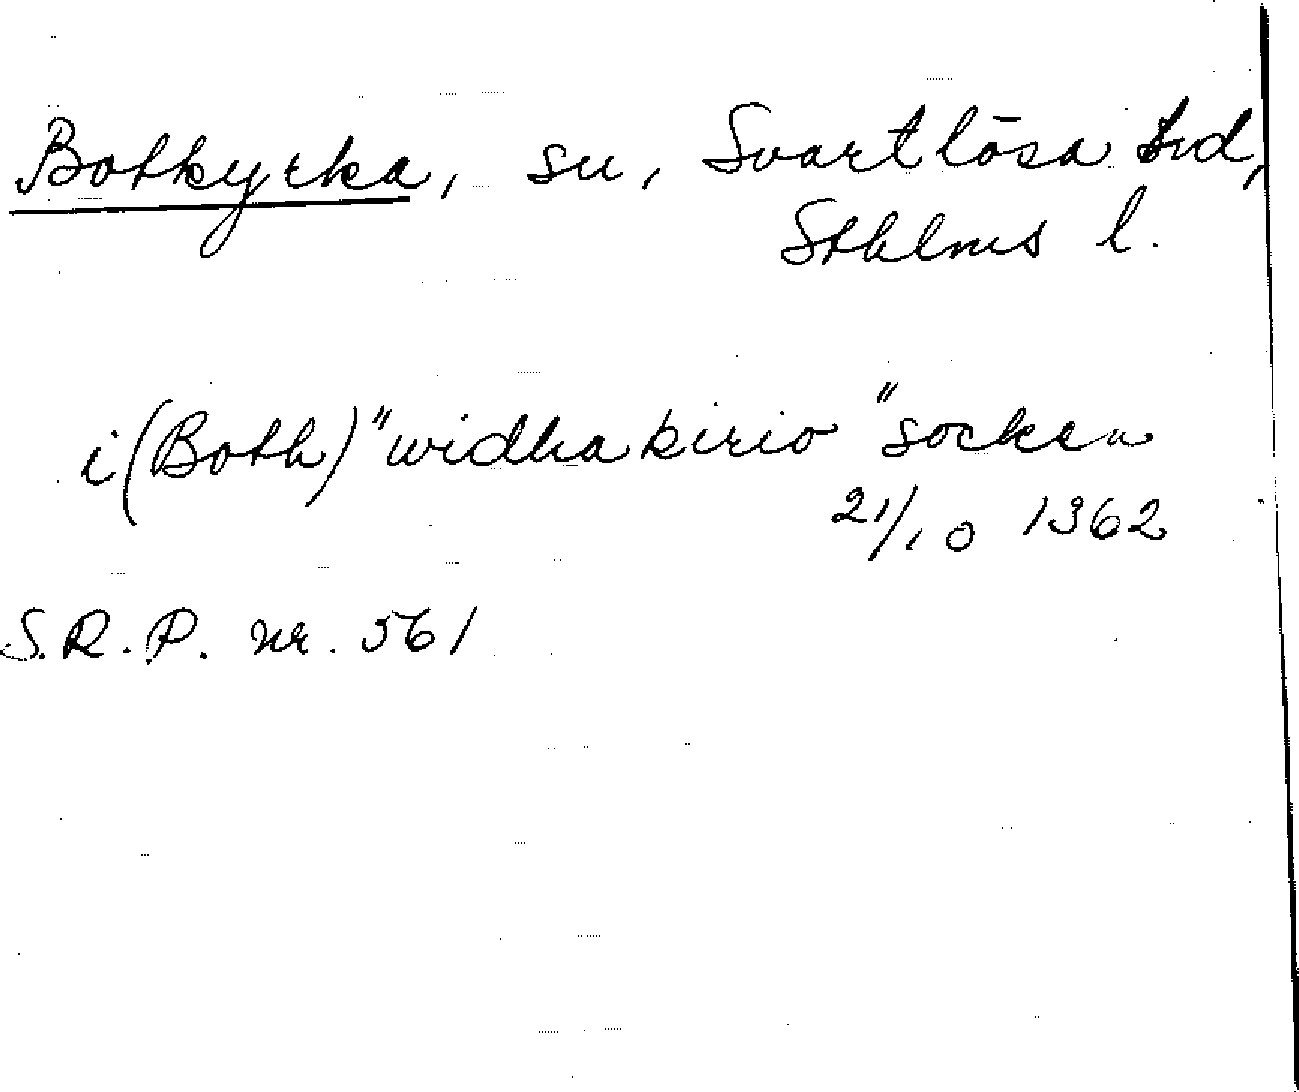 Botkyrka, sn, Svartlösa hd,
Sthlms l.
i (Both) "widhakirio" socken
21/10 1362
S.R.P. nr. 561